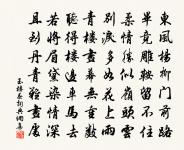 東風楊柳門前路
畢竟雕鞍留不住
柔情勝似嶺頭雲
別淚多如花上雨
青樓畫幕無重數
聽得樓邊車馬去
若將眉黛染情深
且到丹青難畫處
玉樓春